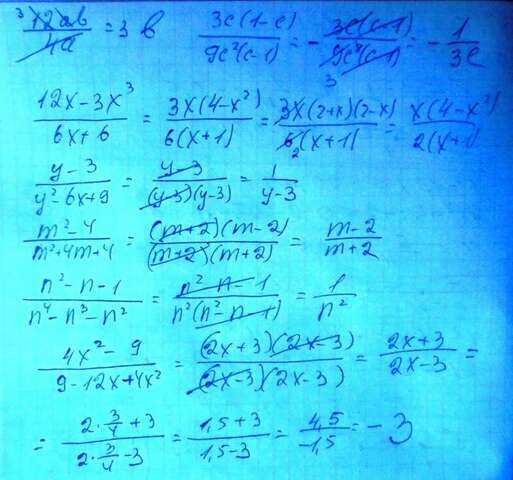 12ab/4a = 3b   3c(1-c)/9c²(c-1) = - 3c(c-1)/9c²(c-1) = - 1/3c
12x-3x³/6x+6 = 3x(4-x²)/6(x+1) = 3x(2+x)(2-x)/6(x+1) = x(4-x²)/2(x+1)
y-3/y²-6x+9 = y-3/(y-3)(y-3) = 1/y-3
m²-4/m²+4m+4 = (m+2)(m-2)/(m+2)(m+2) = m-2/m+2
n²-n-1/n⁴-n³-n² = n²-n-1/n²(n²-n-1) = 1/n²
4x²-9/9-12x+4x² = (2x+3)(2x-3)/(2x-3)(2x-3) = 2x+3/2x-3 =
= 2·3/4+3/2·3/4-3 = 1,5+3/1,5-3 = 4,5/-1,5 = -3